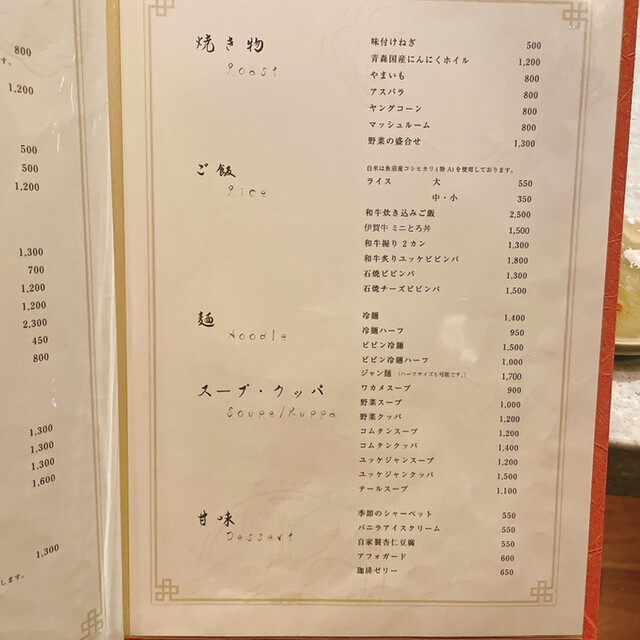 800
す。
1,200
500
500
1,200
1,300
700
1,200
1,200
2,300
450
800
1,300
1,300
1,300
1,600
1,300
します。
焼き物
Roast
味付けねぎ 500
青森国産にんにくホイル 1,200
やまいも 800
アスパラ 800
ヤングコーン 800
マッシュルーム 800
野菜の盛合せ 1,300
ご飯
Rice
白米は魚沼産コシヒカリ(特A)を使用しております。
ライス 大 550
中・小 350
和牛炊き込みご飯 2,500
伊賀牛 ミニとろ丼 1,500
和牛握り2カン 1,300
和牛炙りユッケビビンバ 1,800
石焼ビビンバ 1,300
石焼チーズビビンバ 1,500
麺
Noodle
冷麺 1,400
冷麺ハーフ 950
ビビン冷麺 1,500
ビビン冷麺ハーフ 1,000
ジャン麺 (ハーフサイズも可能です。) 1,700
スープ・クッパ
Soupe/Kuppa
ワカメスープ 900
野菜スープ 1,000
野菜クッパ 1,200
コムタンスープ 1,200
コムタンクッパ 1,400
ユッケジャンスープ 1,200
ユッケジャンクッパ 1,500
テールスープ 1,100
甘味
Dessert
季節のシャーベット 550
バニラアイスクリーム 550
自家製杏仁豆腐 550
アフォガード 600
珈琲ゼリー 650